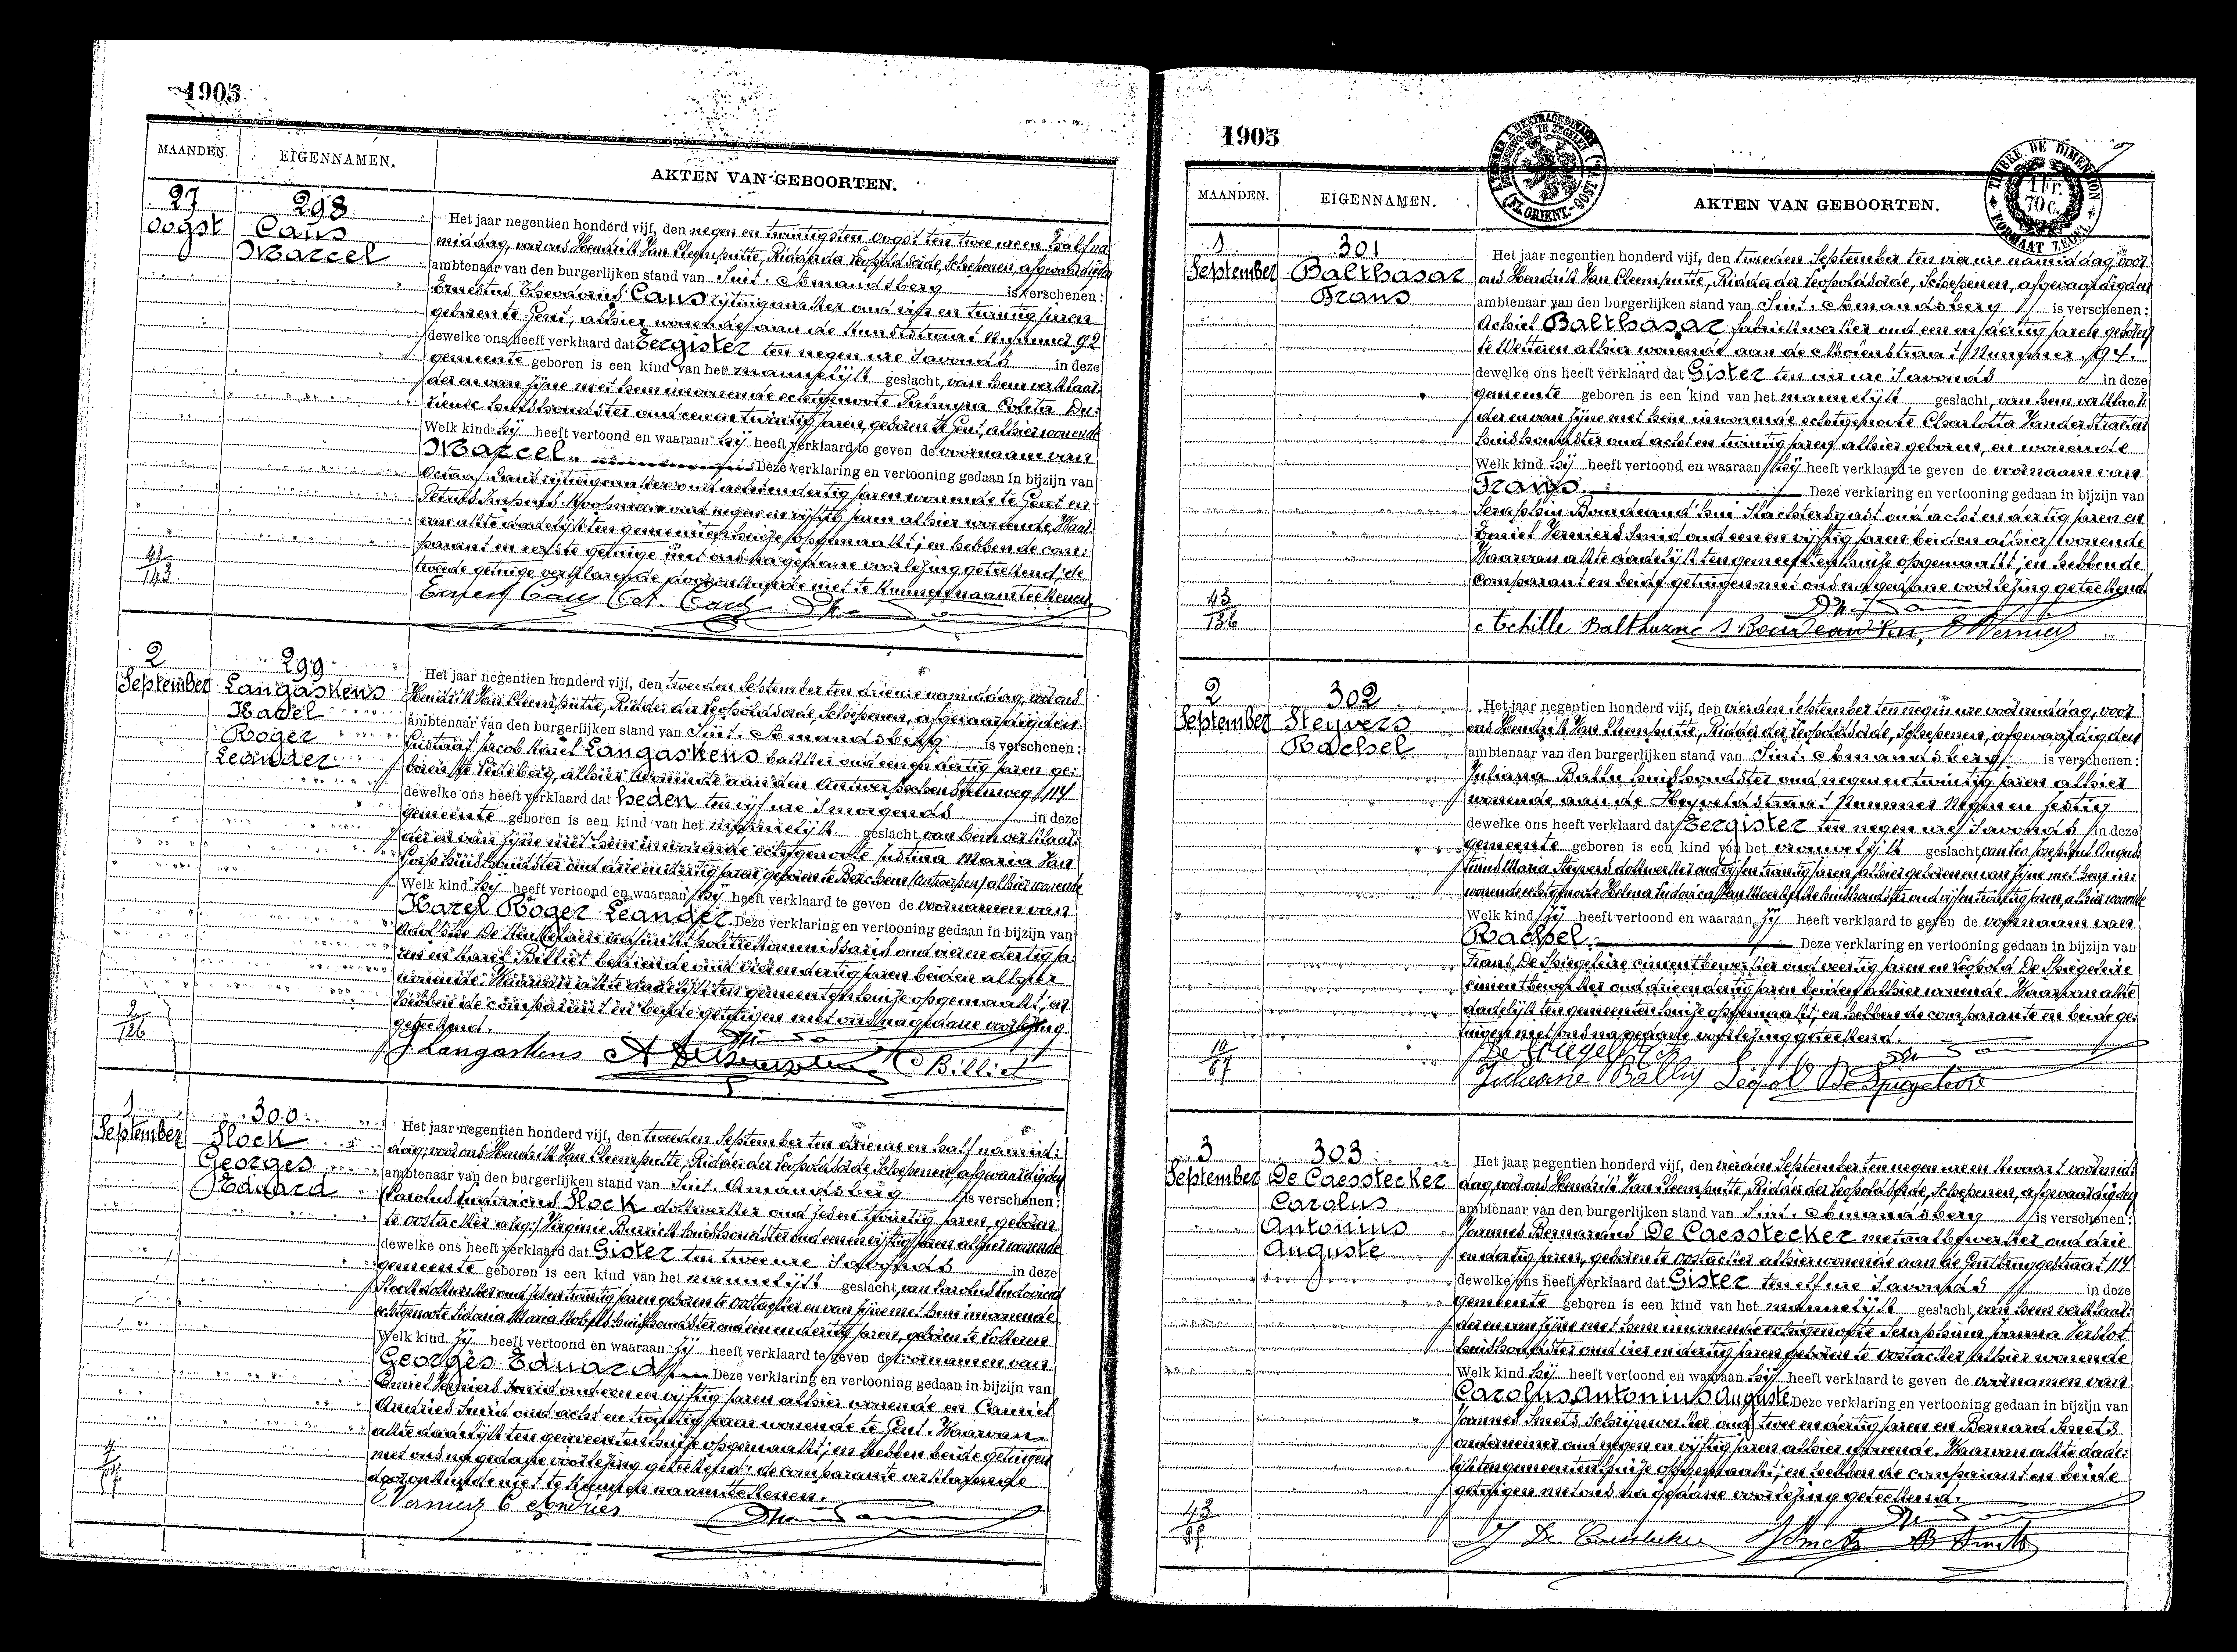 1905
MAANDEN. EIGENNAMEN. AKTEN VAN GEBOORTEN.
27 oogst
298
Caus
Marcel
Het jaar negentien honderd vijf, den negen en twintigsten oogst ten twee ure en half na
middag, voor ons Hendrik Van Cleemputte, Ridder der Leopoldsorde, Schepenen, afgevaardigden
ambtenaar van den burgerlijken stand van Sint-Amandsberg is verschenen:
Ernestus Theodorus Caus rijtuigmaker oud vijf en twintig jaren
geboren te Gent, alhier wonende aan de Hundststraat Nummer 92
dewelke ons heeft verklaard dat Eergister ten negen ure s'avonds in deze
gemeente geboren is een kind van het mannelijk geslacht, van hem verklaar:
der en van zijne met hem inwonende echtgenoote Palmyra Coleta Du:
rieuse huishoudster oud een en twintig jaren, geboren te Gent, alhier wonende
Welk kind hij heeft vertoond en waaraan hij heeft verklaard te geven de voornaam van
Marcel. Deze verklaring en vertooning gedaan in bijzijn van
Octaaf Caus rijtuigmaker oud acht en dertig jaren wonende te Gent en
Petrus oud negen en vijftig jaren alhier wonende, Waar:
van akte dadelijk ten gemeentenhuize opgemaakt; en hebben de com:
parant en eerste getuige met ons na gedane voorlezing geteekend; de
tweede getuige verklarende door onkunde niet te kunnen naamteekenen
Ernest Caus Oct. Caus
41
143
2 September
299
Langaskens
Karel
Roger
Leander
Het jaar negentien honderd vijf, den tweeden September ten drie ure namiddag, voor ons
Hendrik Van Cleemputte, Ridder der Leopoldsorde, Schepenen, afgevaardigden
ambtenaar van den burgerlijken stand van Sint-Amandsberg is verschenen:
Gustaaf Jacob Karel Langaskens bakker oud een en dertig jaren ge:
boren te Ledeberg, alhier wonende aan den Antwerpschen Steenweg, 114
dewelke ons heeft verklaard dat heden ten vijf ure s'morgends in deze
gemeente geboren is een kind van het mannelijk geslacht, van hem verklaar:
der en van zijne met hem inwonende echtgenoote Justina Maria Van
Gorp huishoudster oud drie en dertig jaren, geboren te Berchem (Antwerpen) alhier wonende
Welk kind hij heeft vertoond en waaraan hij heeft verklaard te geven de voornamen van
Karel Roger Leander. Deze verklaring en vertooning gedaan in bijzijn van
De adjunkt politiekommissaris oud vier en dertig ja:
ren en Karel Billiet bediende oud vier en dertig jaren beiden alhier
wonende. Waarvan akte dadelijk ten gemeentenhuize opgemaakt; en
hebben de comparant en beide getuigen met ons na gedane voorlezing
geteekend.
G Langaskens C Billiet
2
126
1 September
300
Slock
Georges
Eduard
Het jaar negentien honderd vijf, den tweeden September ten drie ure en half namid:
dag, voor ons Hendrik Van Cleemputte, Ridder der Leopoldsorde Schepenen, afgevaardigden
ambtenaar van den burgerlijken stand van Sint-Amandsberg is verschenen:
Carolus Ludovicus Slock dokwerker oud zes en twintig jaren, geboren
te oostacker Virginie huishoudster oud een en vijftig jaren alhier wonende
dewelke ons heeft verklaard dat Gister ten twee ure s'avonds in deze
gemeente geboren is een kind van het mannelijk geslacht, van Carolus Ludovicus
Slock dokwerker oud zes en twintig jaren geboren te oostacker en van zijne met hem inwonende
echtgenoote Sidonia Maria huishoudster oud een en dertig jaren, geboren te
Welk kind zij heeft vertoond en waaraan zij heeft verklaard te geven de voornamen van
Georges Eduard Deze verklaring en vertooning gedaan in bijzijn van
Emiel Verniers Smid oud een en vijftig jaren alhier wonende en Camiel
Andries Smid oud acht en twintig jaren wonende te Gent. Waarvan
akte dadelijk ten gemeentenhuize opgemaakt; en hebben beide getuigen
met ons na gedane voorlezing geteekend; de comparante verklarende
door onkunde niet te kunnen naamteekenen.
E Verniers C Andries
1905
TIMBRE DE DIMENSION
1 Fr. 70 c.
FORMAAT ZEGEL
MAANDEN. EIGENNAMEN. AKTEN VAN GEBOORTEN.
1 September
301
Balthasar
Frans
Het jaar negentien honderd vijf, den tweeden September ten vier ure namiddag, voor
ons Hendrik Van Cleemputte, Ridder der Leopoldsorde, Schepenen, afgevaardigden
ambtenaar van den burgerlijken stand van Sint-Amandsberg is verschenen:
Achiel Balthasar fabriekwerker oud een en dertig jaren geboren
te Wetteren alhier wonende aan de Molenstraat, Nummer 194.
dewelke ons heeft verklaard dat Gister ten vier ure s'avonds in deze
gemeente geboren is een kind van het mannelijk geslacht, van hem verklaar:
der en van zijne met hem inwonende echtgenoote Charlotta Vanderstraeten
huishoudster oud acht en twintig jaren alhier geboren, en wonende
Welk kind hij heeft vertoond en waaraan hij heeft verklaard te geven de voornaam van
Frans. Deze verklaring en vertooning gedaan in bijzijn van
Seraphin Boudeaud'hui Slachtersgast oud acht en dertig jaren en
Emiel Verniers Smid oud een en vijftig jaren beiden alhier wonende
Waarvan akte dadelijk ten gemeentenhuize opgemaakt; en hebben de
comparant en beide getuigen met ons na gedane voorlezing geteekend.
Achille Balthazar S Boudeaud'hui, E Verniers
43
136
2 September
302
Steyvers
Rachel
Het jaar negentien honderd vijf, den vierden September ten negen ure voormiddag, voor
ons Hendrik Van Cleemputte, Ridder der Leopoldsorde, Schepenen, afgevaardigden
ambtenaar van den burgerlijken stand van Sint-Amandsberg is verschenen:
Juliana Ballu huishoudster oud negen en twintig jaren alhier
wonende aan de Heyveldstraat Nummer Negen en zestig
dewelke ons heeft verklaard dat Eergister ten negen ure s'avonds in deze
gemeente geboren is een kind van het vrouwelijk geslacht, van Leo Josephus Augus
tinus Maria Steyvers dokwerker oud vijf en twintig jaren alhier geboren en van zijne met hem in:
wonende echtgenoote Helena Ludovica Van huishoudster oud vijf en twintig jaren, alhier wonende
Welk kind zij heeft vertoond en waaraan zij heeft verklaard te geven de voornaam van
Rachel. Deze verklaring en vertooning gedaan in bijzijn van
Frans De Spiegeleire cimentbewerker oud veertig jaren en Leopold De Spiegeleire
cimentbewerker oud drie en dertig jaren beiden alhier wonende. Waarvan akte
dadelijk ten gemeentenhuize opgemaakt; en hebben de comparante en beide ge:
tuigen met ons na gedane voorlezing geteekend.
De Spiegeleire F
Juliane Ballu Leopold De Spiegeleire
10
67
3 September
303
De Caesstecker
Carolus
Antonius
Auguste
Het jaar negentien honderd vijf, den vierden September ten negen ure en kwaart voormid:
dag, voor ons Hendrik Van Cleemputte, Ridder der Leopoldsorde, Schepenen, afgevaardigden
ambtenaar van den burgerlijken stand van Sint-Amandsberg is verschenen:
Joannes Bernardus De Caesstecker metaalbewerker oud drie
en dertig jaren, geboren te oostacker alhier wonende aan de Gentbruggestraat, 114
dewelke ons heeft verklaard dat Gister ten elf ure s'avonds in deze
gemeente geboren is een kind van het mannelijk geslacht, van hem verklaar:
der en van zijne met hem inwonende echtgenoote Seraphina Joanna Verslot
huishoudster oud vier en dertig jaren geboren te oostacker alhier wonende
Welk kind hij heeft vertoond en waaraan hij heeft verklaard te geven de voornamen van
Carolus Antonius Auguste. Deze verklaring en vertooning gedaan in bijzijn van
Joannes Smets Schrijnwerker oud twee en dertig jaren en Bernard Smets
ondernemer oud negen en vijftig jaren alhier wonende. Waarvan akte dade:
lijk ten gemeentenhuize opgemaakt; en hebben de comparant en beide
getuigen met ons na gedane voorlezing geteekend.
J De Caesstecker J Smets B Smets
43